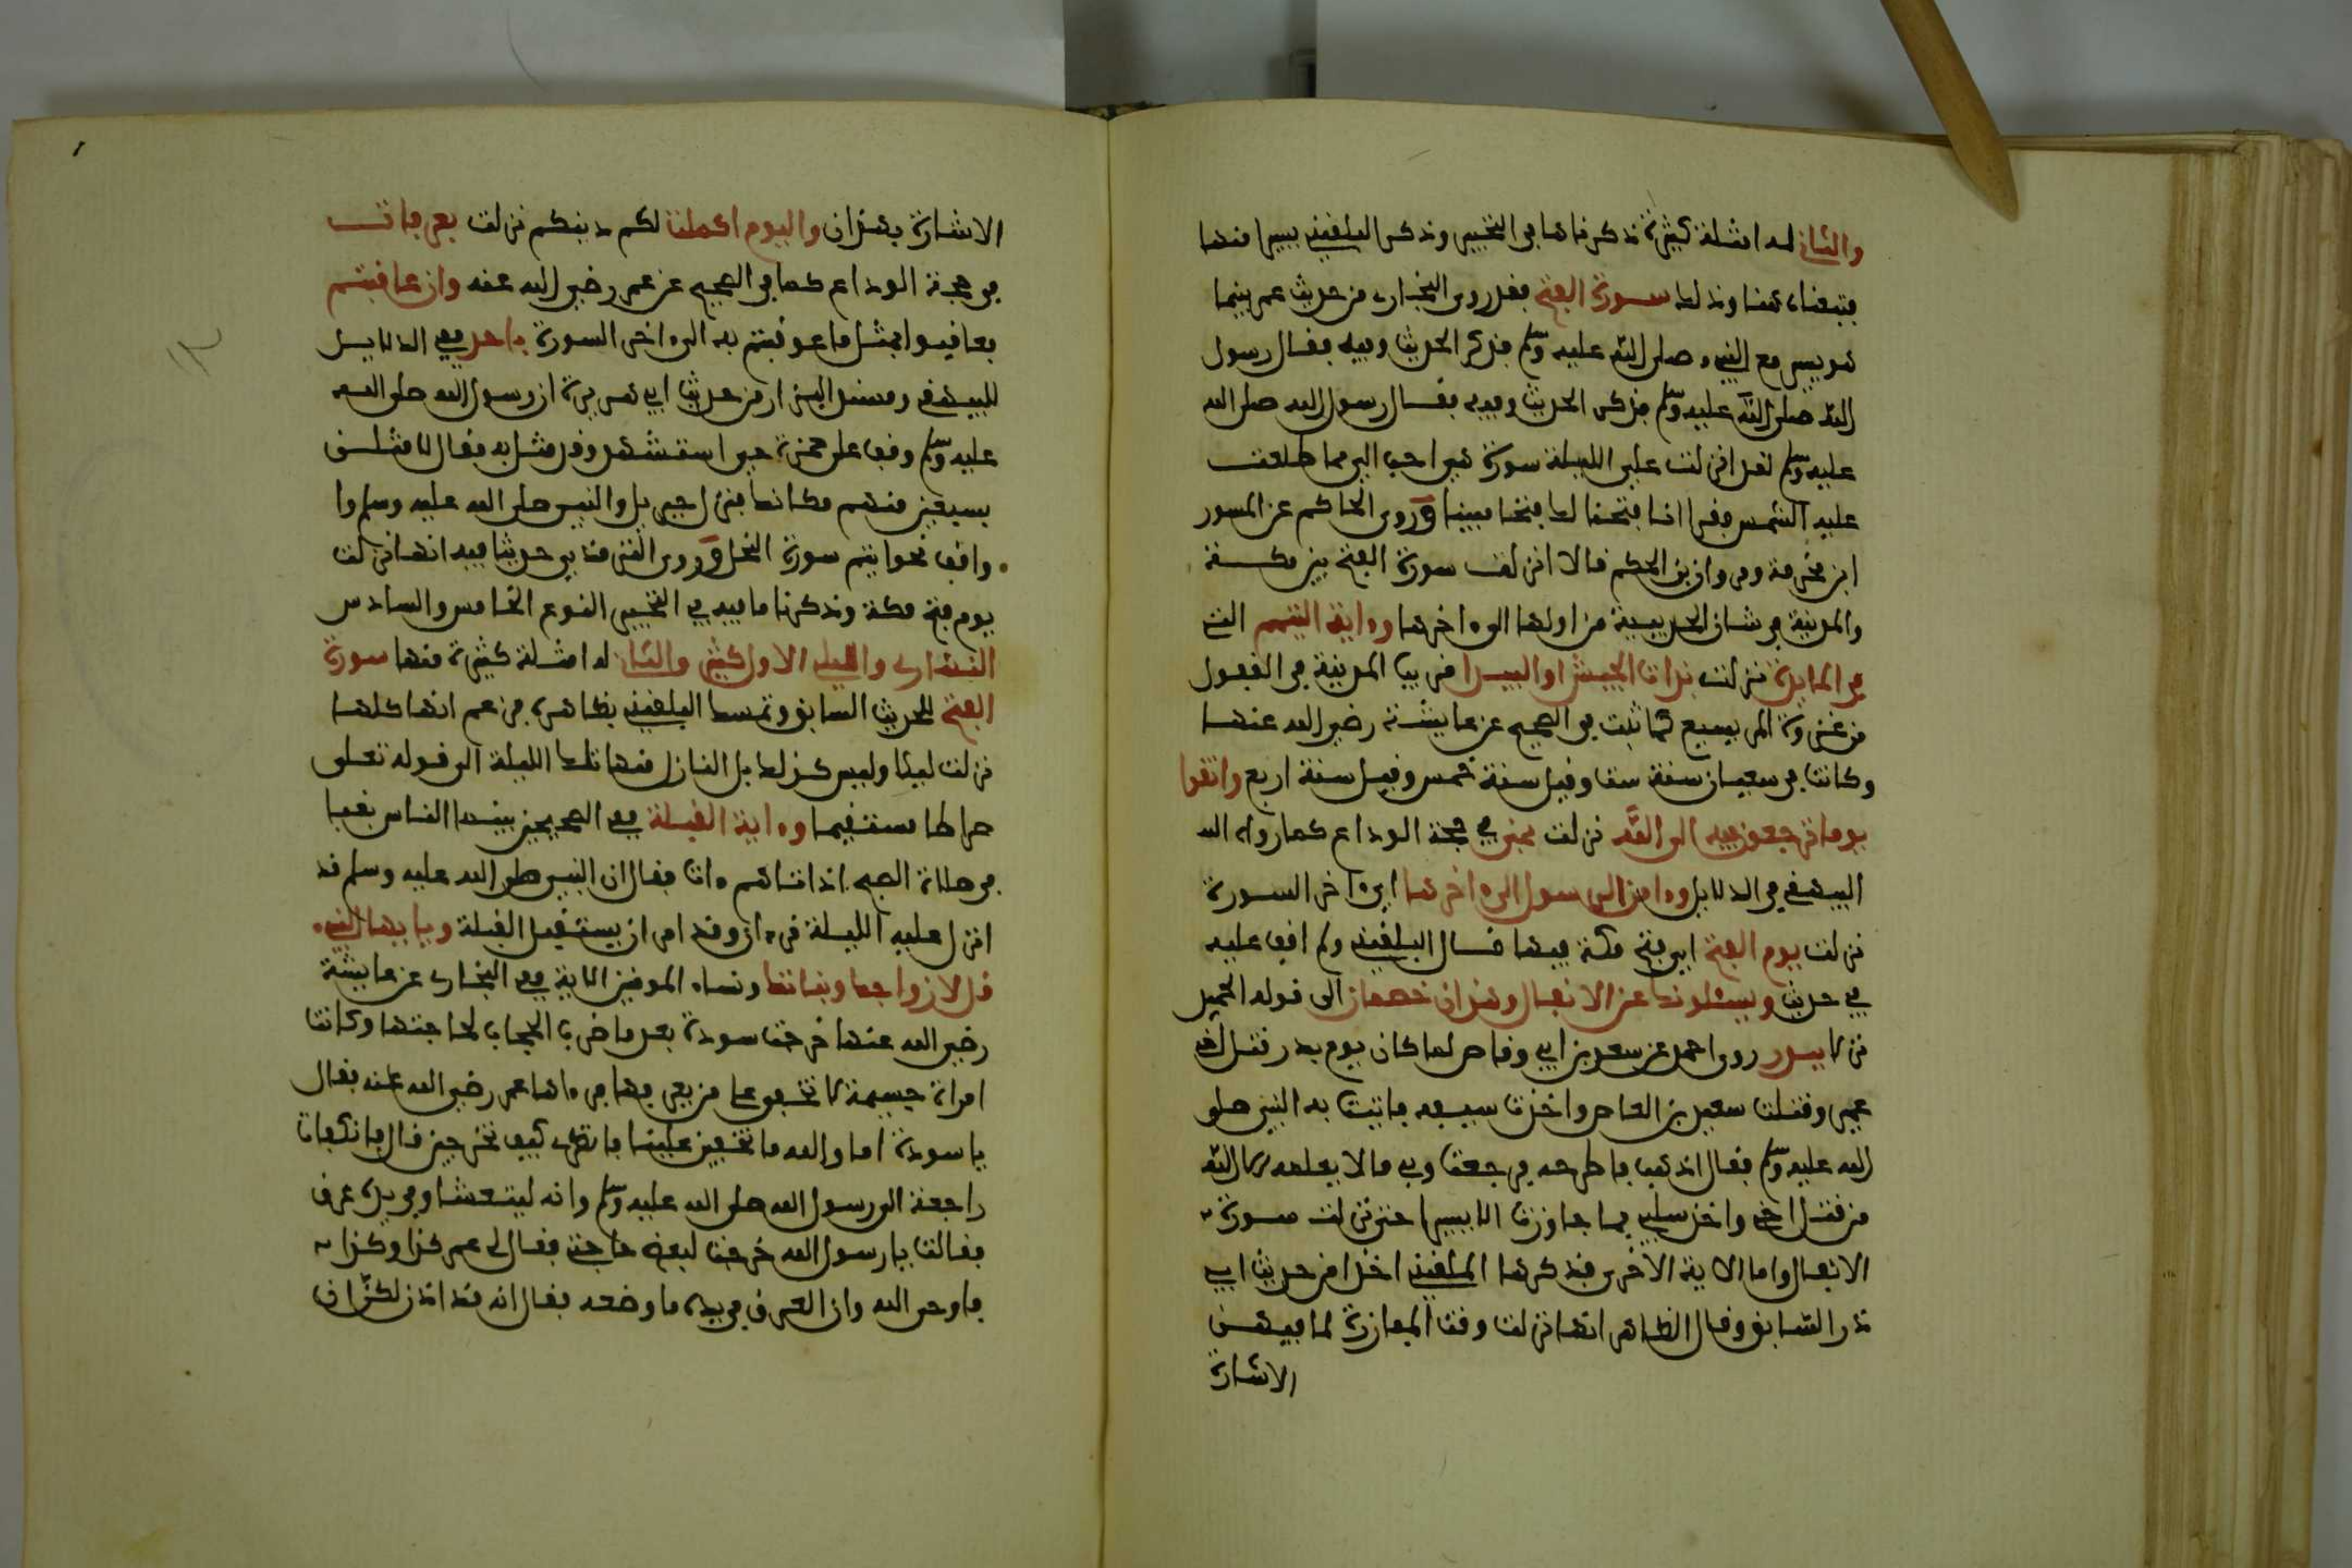 والثاني له امثلة كثيرة ذكرناها في التحبير وذكر البلقيني يسيرا منها
فتبعناه هنا وذلك سورة الفتح فقد روى البخاري من حديث عمر بينما
هو يسير مع النبيء صلى الله عليه وسلم فذكر الحديث وفيه فقال رسول
الله صلى الله عليه وسلم فذكر الحديث وفيه فقال رسول الله صلى الله
عليه وسلم لقد انزلت علي الليلة سورة هي احب الي مما طلعت
عليه الشمس فقرا انا فتحنا لك فتحا مبينا وروى الحاكم عن المسور
ابن مخرمة ومروان بن الحكم قالا انزلت سورة الفتح بين مكة
والمدينة في شان الحديبية من اولها الى ءاخرها وءاية التيمم التي
في المايدة نزلت بذات الجيش او البيدا قريب المدينة في القفول
من غزوة المريسيع كما ثبت في الصحيح عن عايشة رضي الله عنها
وكانت في شعبان سنة ست وقيل سنة خمس وقيل سنة اربع واتقوا
يوما ترجعون فيه الى الله نزلت بمنى في حجة الوداع كما رواه
البيهقي في الدلايل وءامن الرسول الى ءاخرها اي ءاخر السورة
نزلت يوم الفتح اي فتح مكة فيما قال البلقيني ولم اقف عليه
في حديث ويسئلونك عن الانفال وهذان خصمان الى قوله الحميد
نزلا ببدر روى احمد عن سعد بن ابي وقاص لما كان يوم بدر قتل اخي
عمير وقتلت سعيد بن العاص واخذت سيفه فاتيت به النبي صلى
الله عليه وسلم فقال اذهب فاطرحه فرجعت وبي ما لا يعلمه الا الله
من قتل اخي واخذ سلبي فما جاوزت الا يسيرا حتى نزلت سورة
الانفال واما الاية الاخرى فذكرها البلقيني اخذا من حديث ابي
ذر السابق وقال الظاهر انها نزلت وقت المبارزة لما فيه من
الاشارة
الاشارة بهذان واليوم اكملت لكم دينكم نزلت بعرفات
في حجة الوداع كما في الصحيح عن عمر رضي الله عنه وان عاقبتم
فعاقبوا بمثل ما عوقبتم به الى ءاخر السورة باحد ففي الدلايل
للبيهقي ومسند البزار من حديث ابي هريرة ان رسول الله صلى الله
عليه وسلم وقف على حمزة حين استشهد وقد مثل به فقال لامثلن
بسبعين منهم مكانك فنزل جبريل والنبي صلى الله عليه وسلم
واقف بخواتيم سورة النحل وروى الترمذي حديثا فيه انها نزلت
يوم فتح مكة وذكرنا ما فيه في التحبير النوع الخامس والسادس
النهاري والليلي الاول كثير والثاني له امثلة كثيرة منها سورة
الفتح للحديث السابق وتمسك البلقيني بظاهره فزعم انها كلها
نزلت ليلا وليس كذلك بل النازل منها تلك الليلة الى قوله تعلى
صراطا مستقيما وءاية القبلة ففي الصحيحين بينما الناس بقبا
في صلاة الصبح اذ اتاهم ءات فقال ان النبي صلى الله عليه وسلم قد
انزل عليه الليلة قرءان وقد امر ان يستقبل القبلة ويايها النبيء
قل لازواجك وبناتك ونساء المومنين الاية ففي البخاري عن عايشة
رضي الله عنها خرجت سودة بعد ما ضرب الحجاب لحاجتها وكانت
امراة جسيمة لا تخفى على من يعرفها فرءاها عمر رضي الله عنه فقال
يا سودة اما والله ما تخفين علينا فانظري كيف تخرجين قال فانكفات
راجعة الى رسول الله صلى الله عليه وسلم وانه ليتعشا وفي يده عرق
فقالت يا رسول الله خرجت لبعض حاجتي فقال لي عمر كذا وكذا
فاوحى الله وان العرق في يده ما وضعه فقال انه قد اذن لكن ان